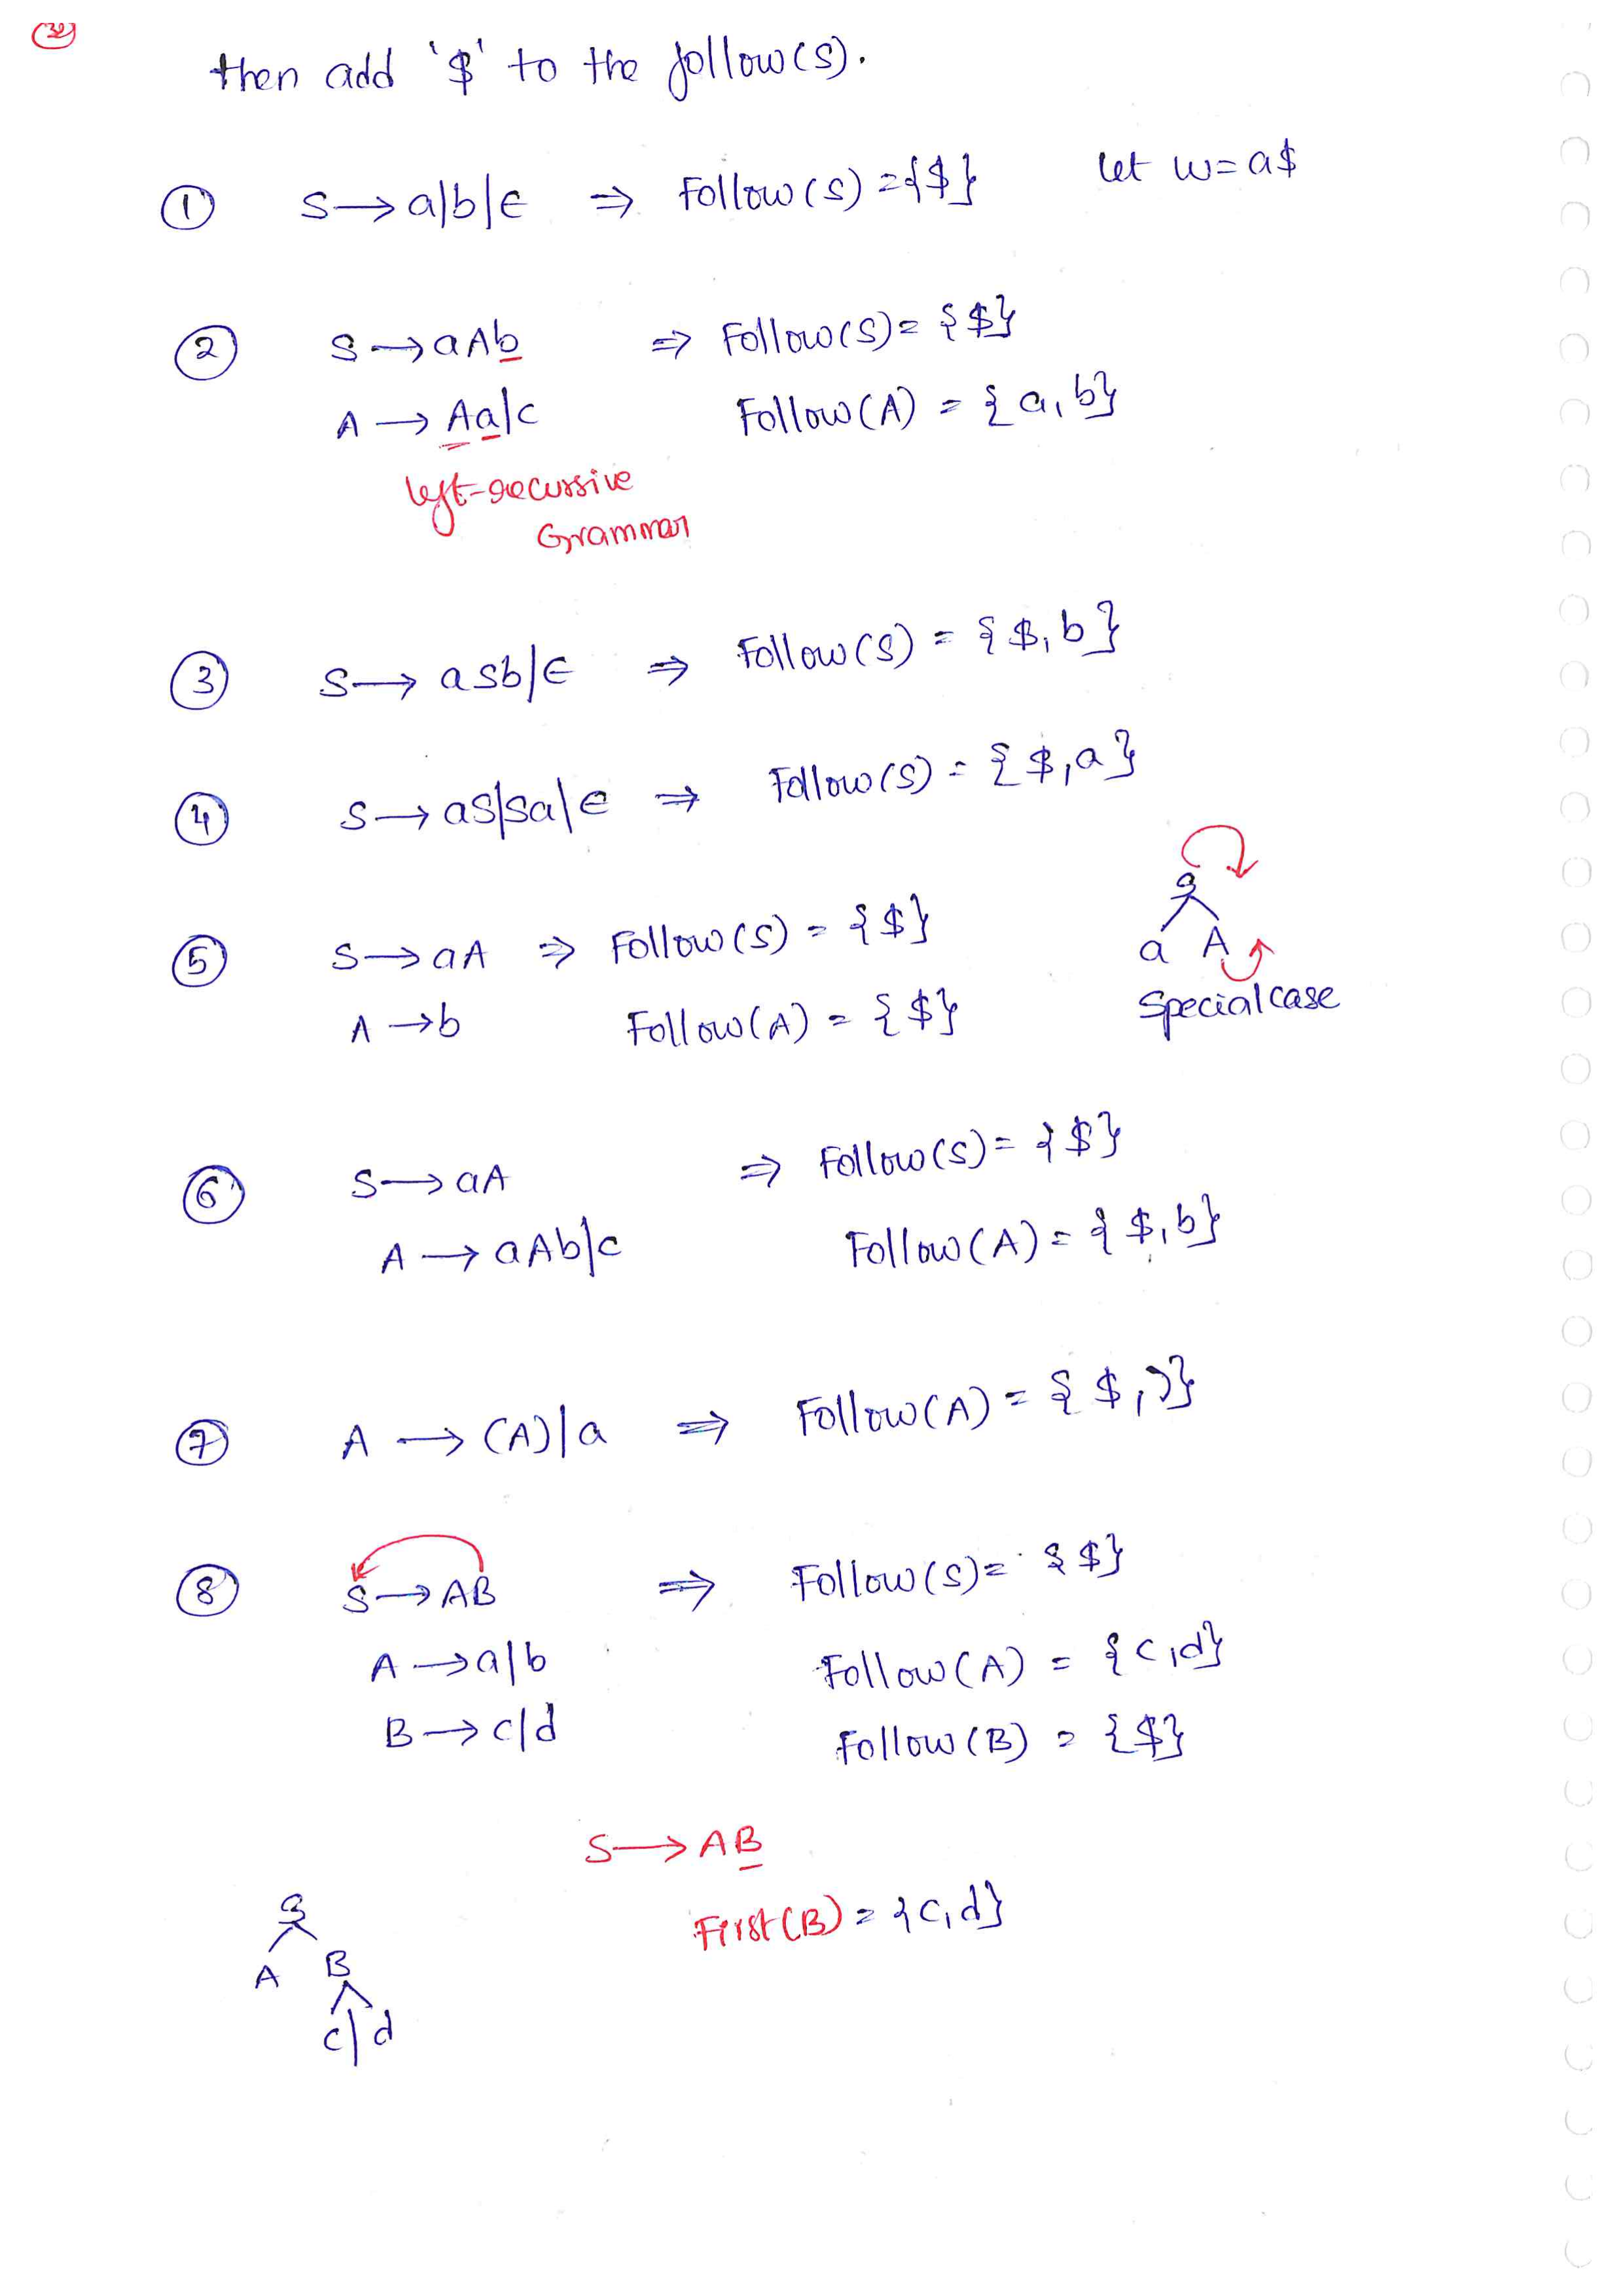 32
then add '$' to the follow(S).
① S → a|b|ϵ ⇒ Follow(S) = {$} let w = a$
② S → aAb ⇒ Follow(S) = {$}
A → Aa|c Follow(A) = {a, b}
left-recurssive
Grammar
③ S → aSb|ϵ ⇒ Follow(S) = {$, b}
④ S → aS|Sa|ϵ ⇒ Follow(S) = {$, a}
S
⑤ S → aA ⇒ Follow(S) = {$}
a A
A → b Follow(A) = {$}
Special case
⑥ S → aA ⇒ Follow(S) = {$}
A → aAb|c Follow(A) = {$, b}
⑦ A → (A)|a ⇒ Follow(A) = {$, )}
⑧ S → AB ⇒ Follow(S) = {$}
A → a|b Follow(A) = {c, d}
B → c|d Follow(B) = {$}
S → AB
S
First(B) = {c, d}
A B
c|d